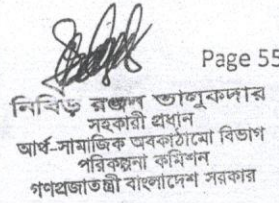 Page 55
নিবিড় রঞ্জন তালুকদার
সহকারী প্রধান
আর্থ-সামাজিক অবকাঠামো বিভাগ
পরিকল্পনা কমিশন
গণপ্রজাতন্ত্রী বাংলাদেশ সরকার